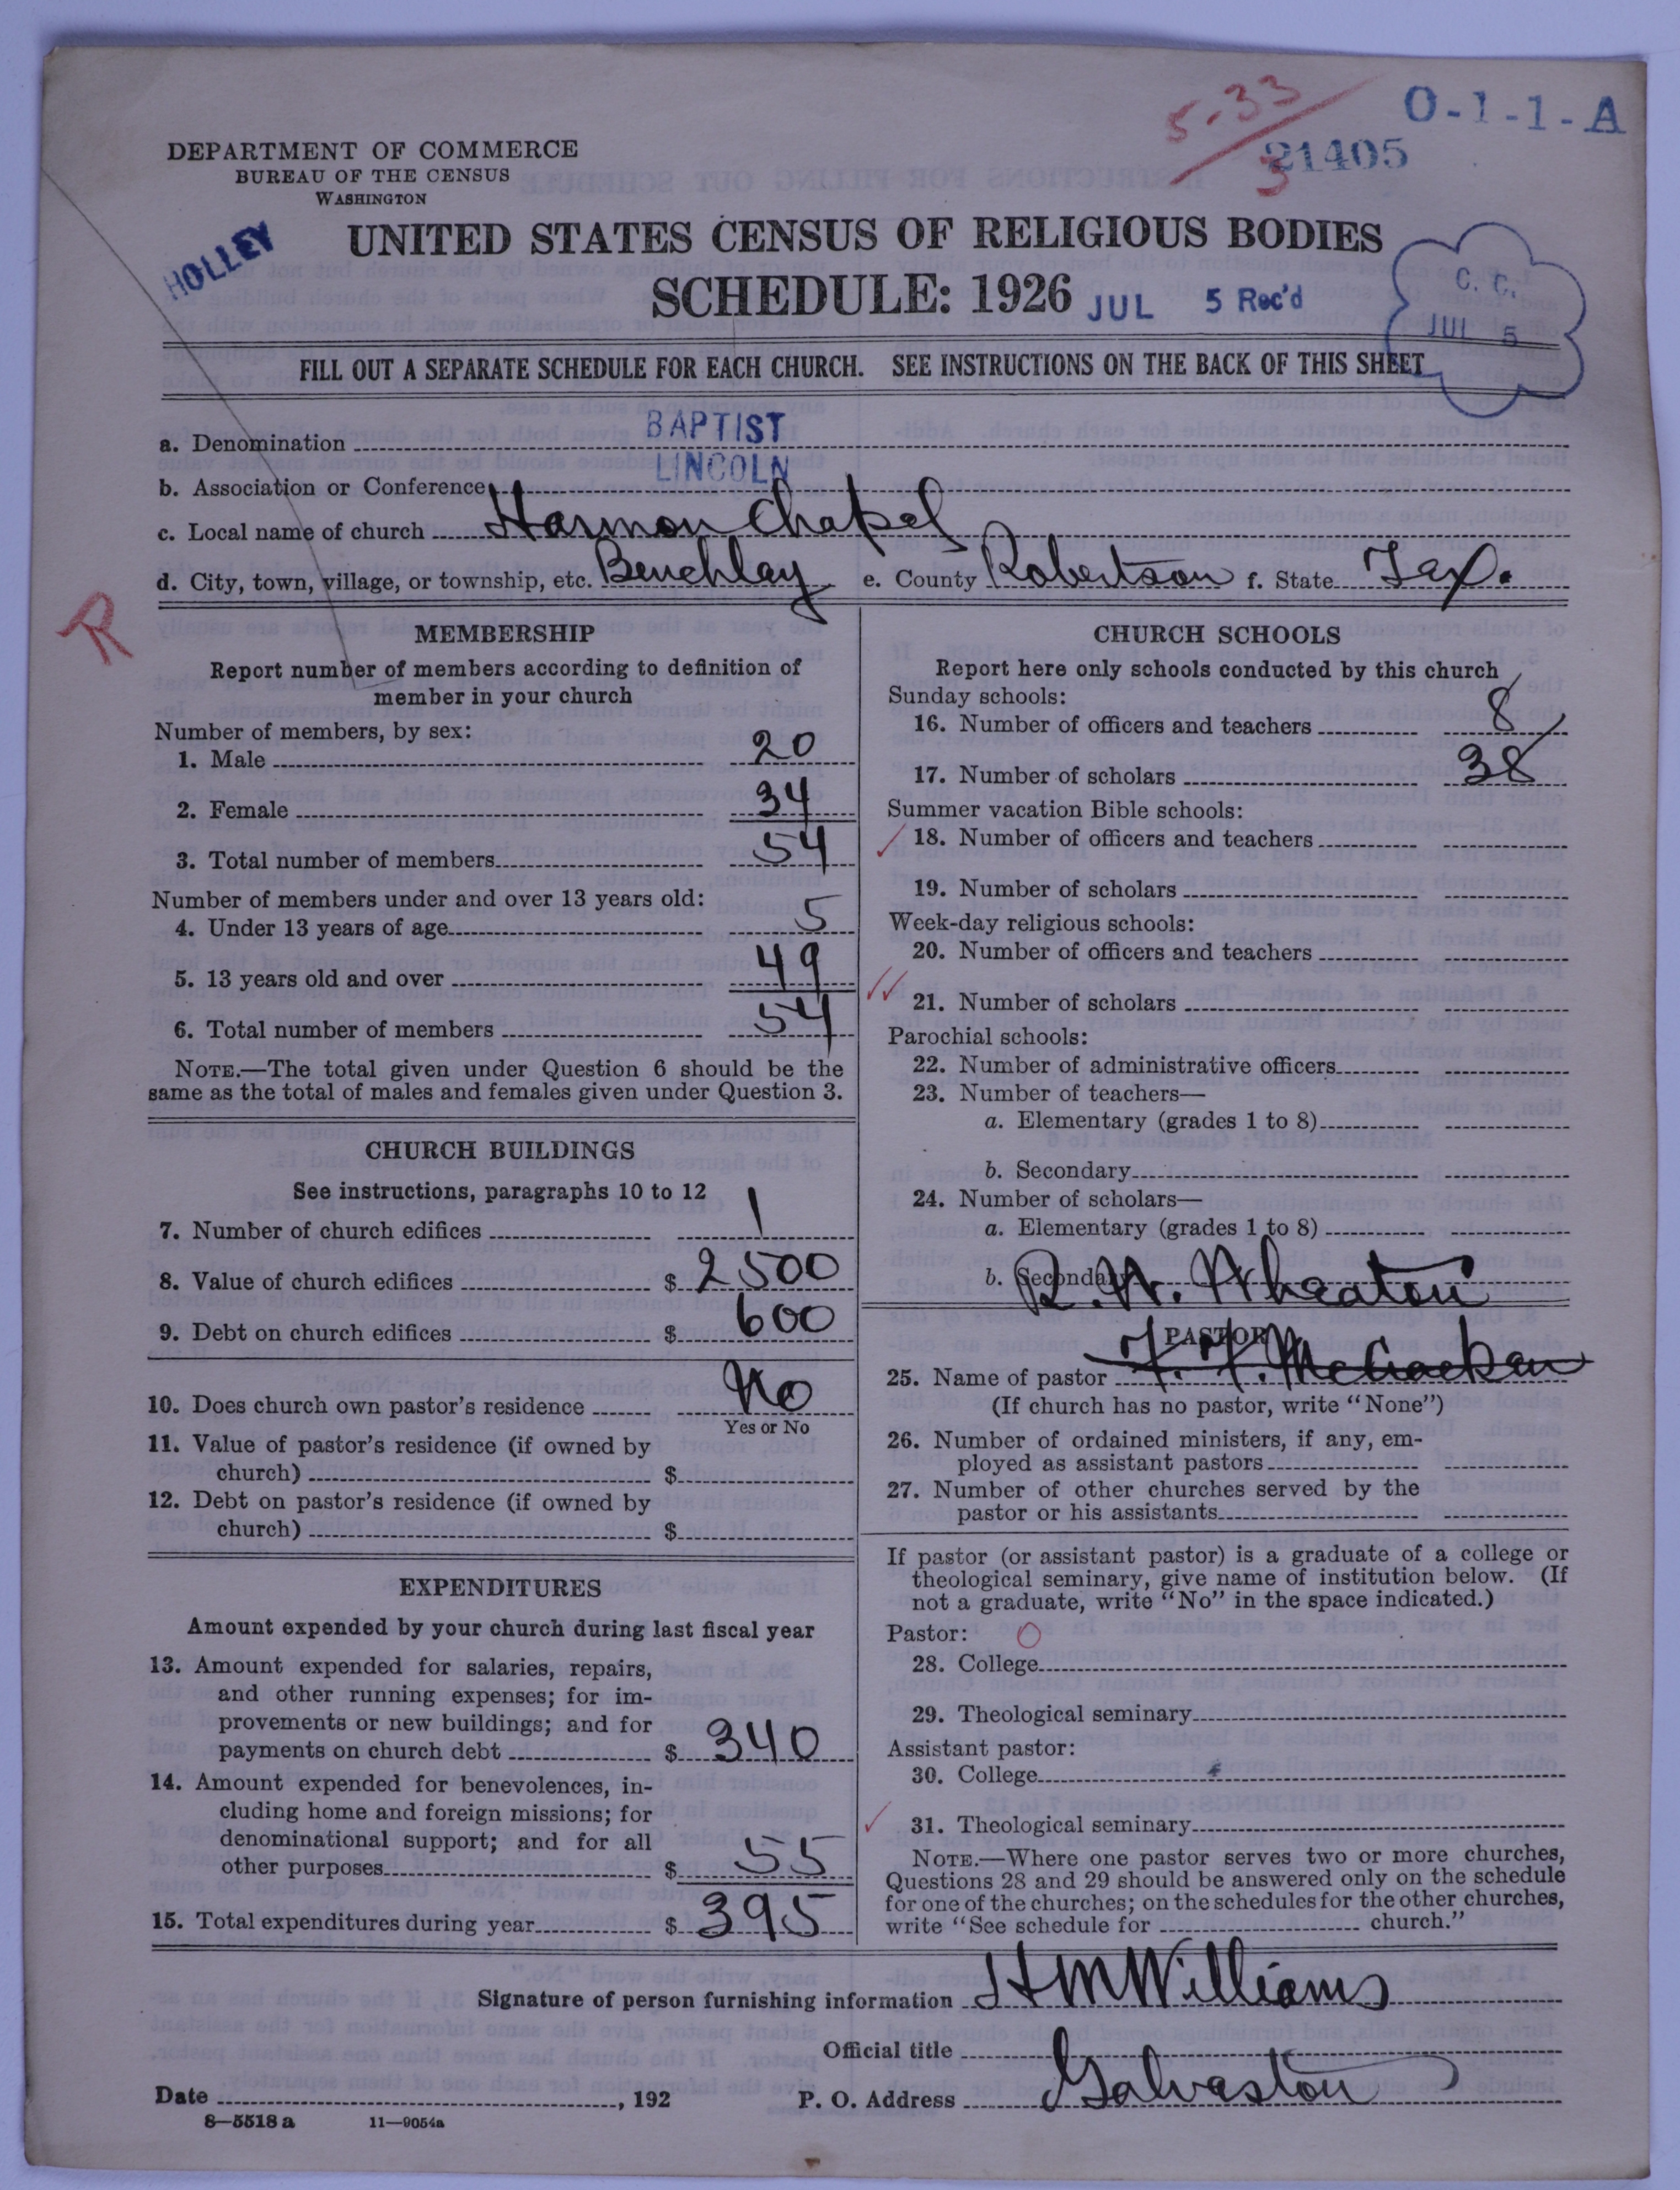 5-33
3
O-1-1-A
21405
DEPARTMENT OF COMMERCE
BUREAU OF THE CENSUS
WASHINGTON
HOLLEY
UNITED STATES CENSUS OF RELIGIOUS BODIES
SCHEDULE: 1926
JUL 5 Rec'd
C. C.
JUL 5
FILL OUT A SEPARATE SCHEDULE FOR EACH CHURCH. SEE INSTRUCTIONS ON THE BACK OF THIS SHEET
a. Denomination BAPTIST
b. Association or Conference LINCOLN
c. Local name of church Harmon Chapel
d. City, town, village, or township, etc. Benchlay e. County Robertson f. State Tex.
R
MEMBERSHIP
Report number of members according to definition of
member in your church
Number of members, by sex:
1. Male 20
2. Female 34
3. Total number of members 54
Number of members under and over 13 years old:
4. Under 13 years of age 5
5. 13 years old and over 49
6. Total number of members 54
NOTE.—The total given under Question 6 should be the
same as the total of males and females given under Question 3.
CHURCH BUILDINGS
See instructions, paragraphs 10 to 12
7. Number of church edifices 1
8. Value of church edifices $ 2500
9. Debt on church edifices $ 600
10. Does church own pastor's residence No
Yes or No
11. Value of pastor's residence (if owned by
church) $
12. Debt on pastor's residence (if owned by
church) $
EXPENDITURES
Amount expended by your church during last fiscal year
13. Amount expended for salaries, repairs,
and other running expenses; for im-
provements or new buildings; and for
payments on church debt $ 340
14. Amount expended for benevolences, in-
cluding home and foreign missions; for
denominational support; and for all
other purposes $ 55
15. Total expenditures during year $ 395
CHURCH SCHOOLS
Report here only schools conducted by this church
Sunday schools:
16. Number of officers and teachers 8
17. Number of scholars 38
Summer vacation Bible schools:
18. Number of officers and teachers
19. Number of scholars
Week-day religious schools:
20. Number of officers and teachers
21. Number of scholars
Parochial schools:
22. Number of administrative officers
23. Number of teachers—
a. Elementary (grades 1 to 8)
b. Secondary
24. Number of scholars—
a. Elementary (grades 1 to 8)
b. Secondary
R. W. Wheaton
PASTOR
25. Name of pastor F. F. McCracken
(If church has no pastor, write "None")
26. Number of ordained ministers, if any, em-
ployed as assistant pastors
27. Number of other churches served by the
pastor or his assistants
If pastor (or assistant pastor) is a graduate of a college or
theological seminary, give name of institution below. (If
not a graduate, write "No" in the space indicated.)
Pastor: O
28. College
29. Theological seminary
Assistant pastor:
30. College
31. Theological seminary
NOTE.—Where one pastor serves two or more churches,
Questions 28 and 29 should be answered only on the schedule
for one of the churches; on the schedules for the other churches,
write "See schedule for church."
Signature of person furnishing information H M Williams
Official title
Date , 192 P. O. Address Galveston
8—5518 a 11—9054a